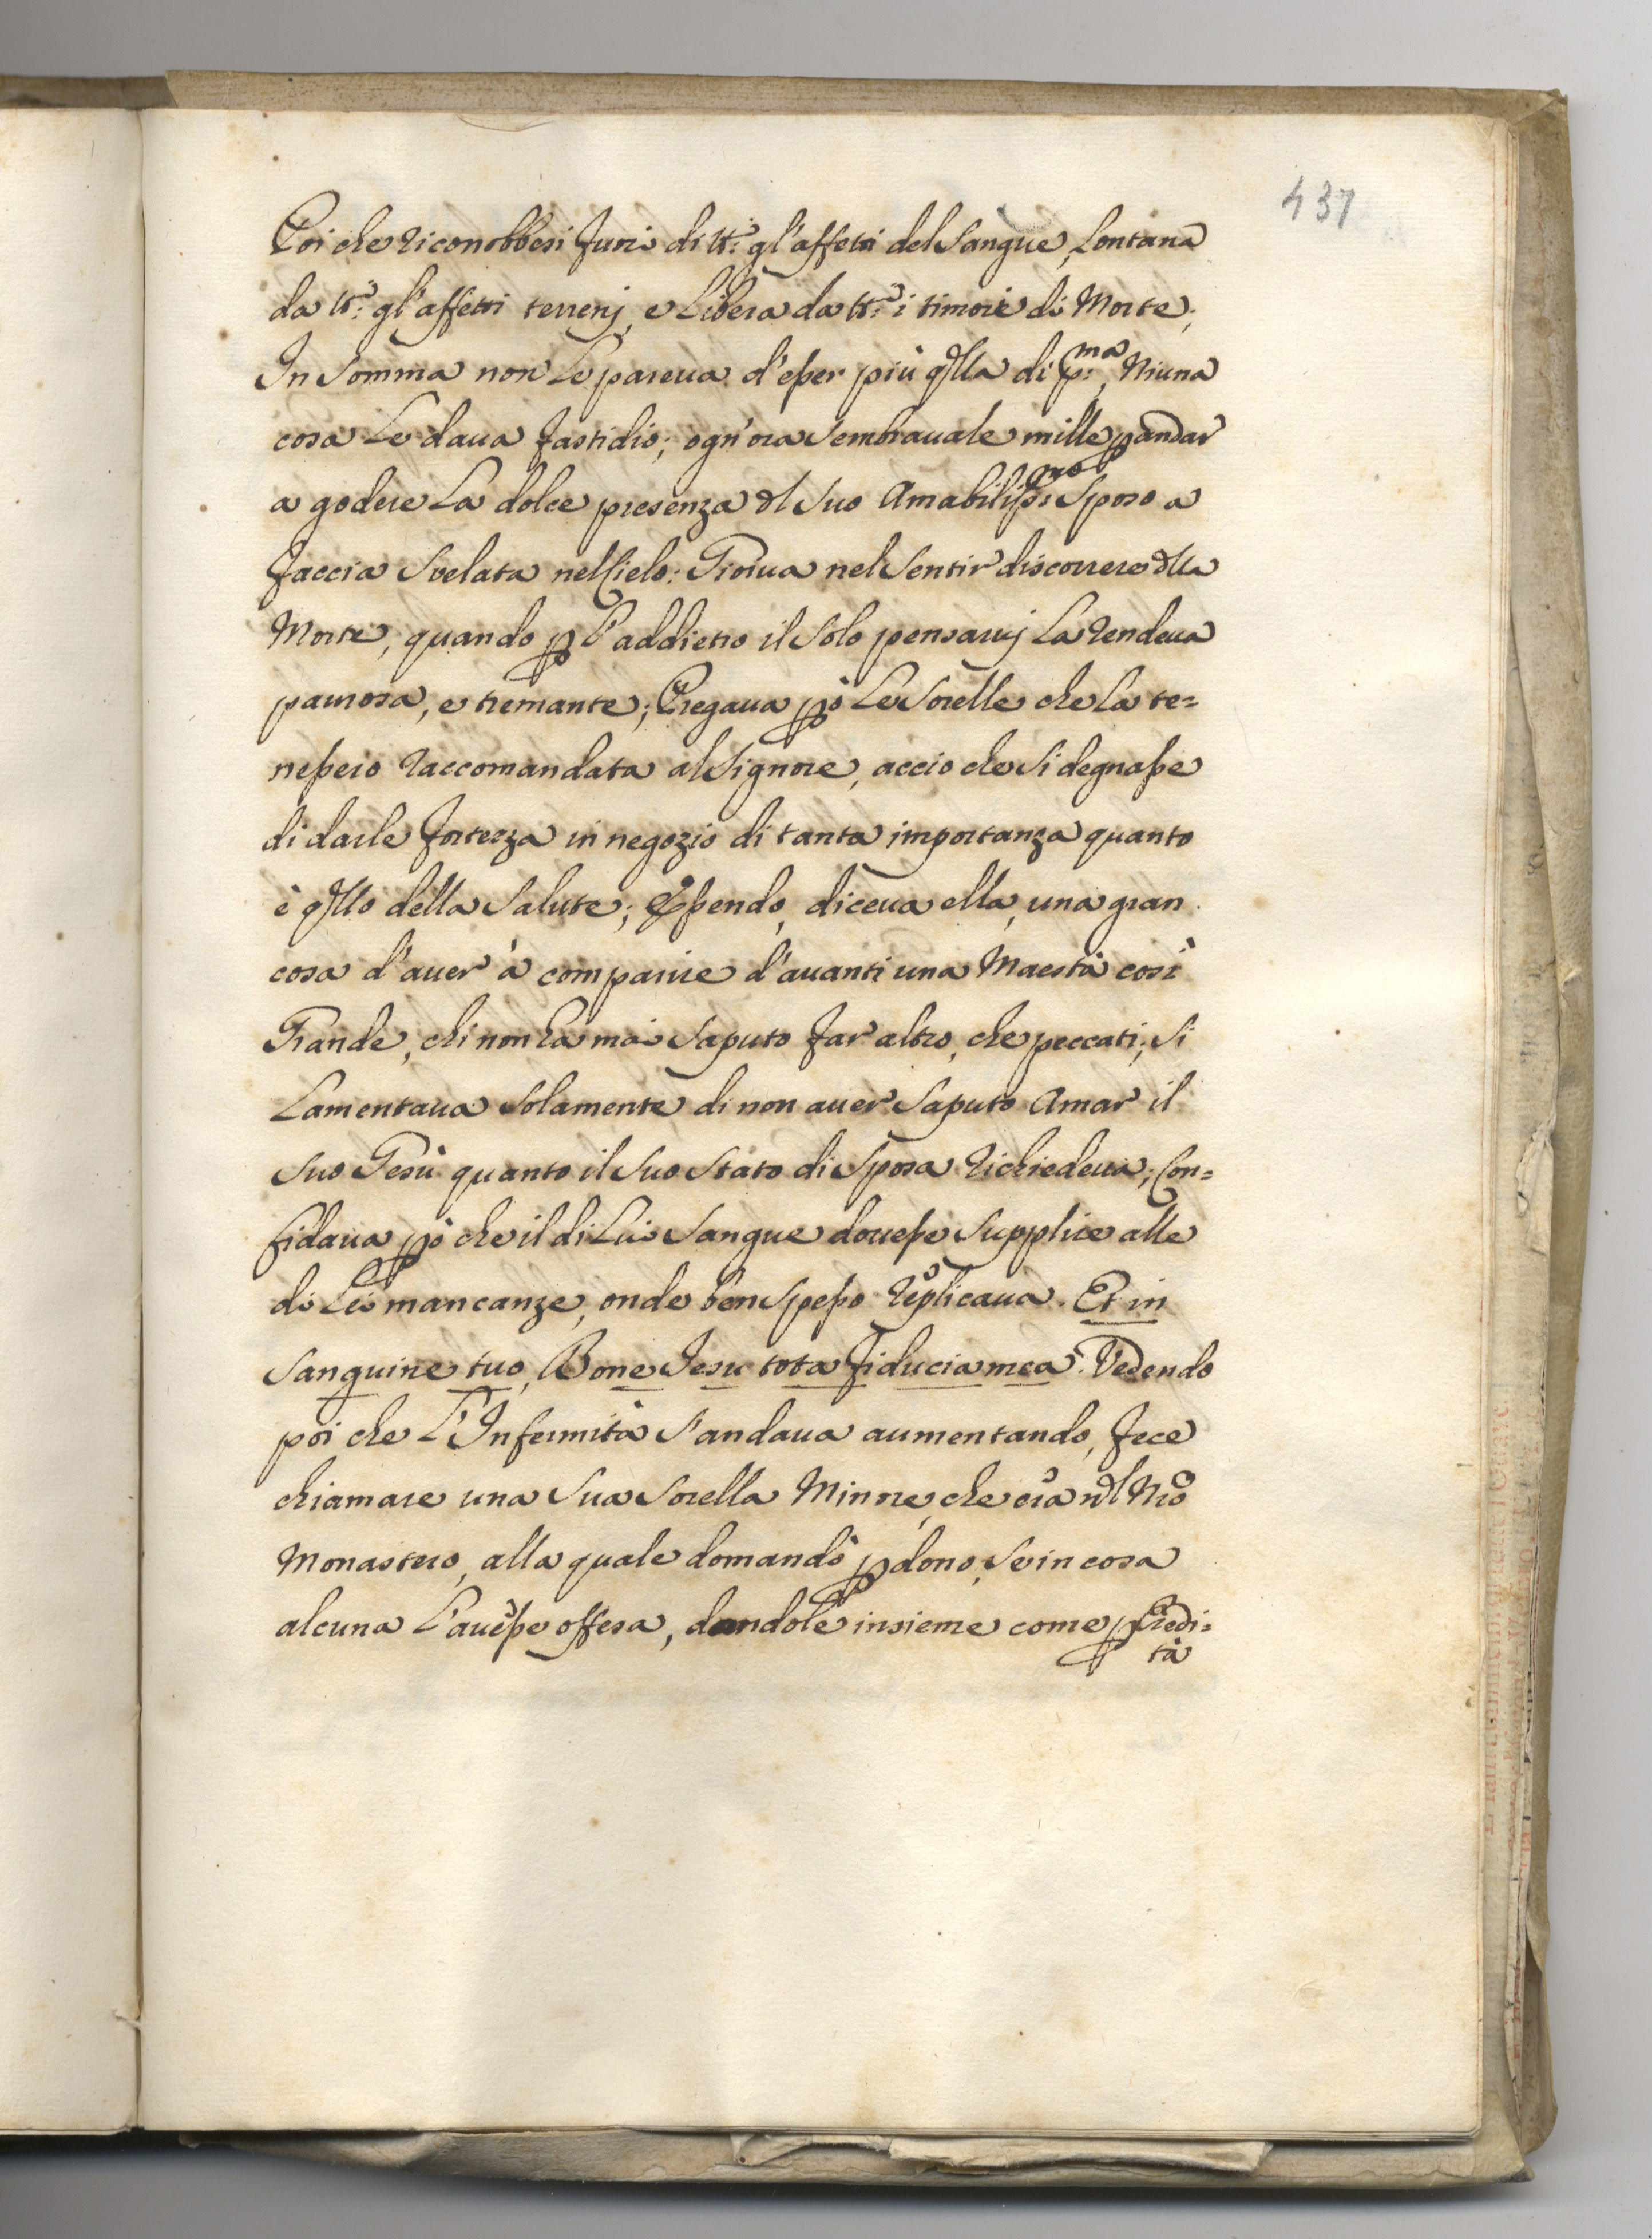 437
Poi che riconobbesi fuori di tt.i gl'affetti del Sangue, Lontana
da tt.i gl'affetti terrenj, e Libera da tt.i i timori di Morte;
In Somma non Le pareua d'esser più qlla di p:ma, Niuna
cosa Le daua fastidio; ogn'ora Sembrauale mille p andar
a godere La dolce presenza dl Suo Amabiliss:mo Sposo a
faccia Svelata nel Cielo: Gioiua nel Sentir discorrere dlla
Morte, quando p l'addietro il Solo pensaruj La rendeua
paurosa, e tremante; Pregaua pò Le Sorelle che La te=
nessero raccomandata al Signore, accio che Si degnasse
di darle fortezza in negozio di tanta importanza quanto
è qllo della Salute; Essendo, diceua ella, una gran
cosa d'auer à comparire d'auanti una Maestà così
Grande, chi non ha mai Saputo far altro, che peccati; Si
Lamentaua Solamente di non auer Saputo Amar il
Suo Gesù quanto il Suo Stato di Sposa richiedeua; Con=
fidaua pò che il di Lui Sangue douesse Supplire alle
di Lei mancanze, onde ben Spesso replicaua. Et in
Sanguine tuo, Bone Jesu tota fiducia mea. Vedendo
poi che L'Infermità S'andaua aumentando, fece
chiamare una Sua Sorella Minore, che era ndl Nro
Monastero, alla quale domandò pdono, Se in cosa
alcuna L'auesse offesa, dandole insieme come p Eredi=
tà